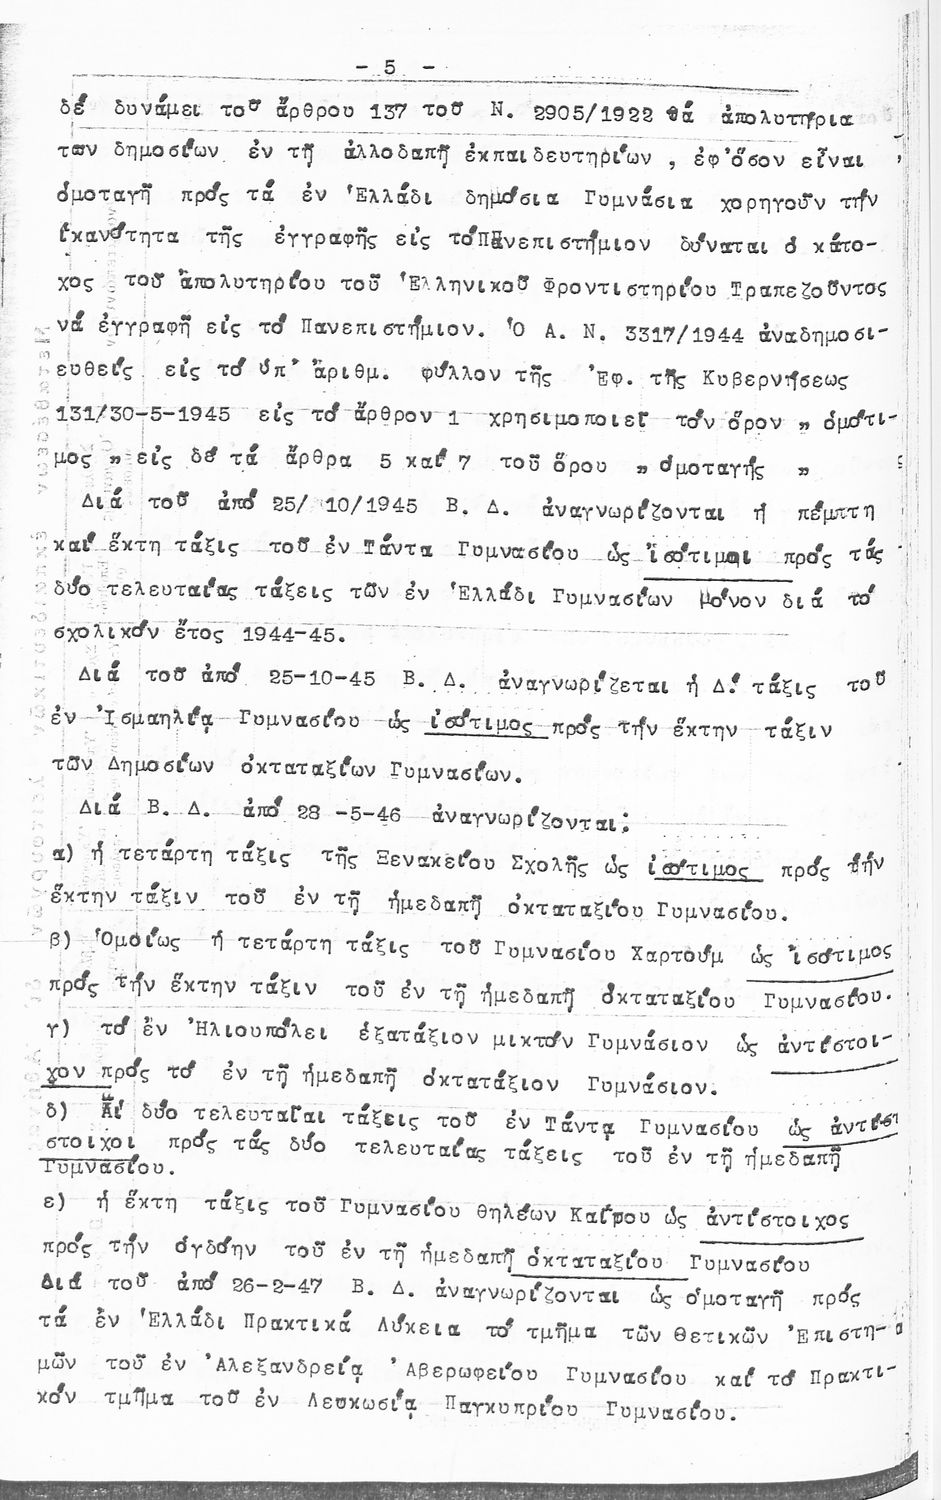 - 5 -
δέ δυνάμει τοῦ ἄρθρου 137 τοῦ Ν. 2905/1922 θά ἀπολυτήρια
των δημοσίων ἐν τῇ ἀλλοδαπῇ ἐκπαιδευτηρίων , ἐφ'ὅσον εἶναι
ὁμοταγῆ πρός τά ἐν Ἑλλάδι δημόσια Γυμνάσια χορηγοῦν τήν
ἱκανότητα τῆς ἐγγραφῆς εἰς τό Πανεπιστήμιον δύναται ὁ κάτο-
χος τοῦ ἀπολυτηρίου τοῦ Ἑλληνικοῦ Φροντιστηρίου Τραπεζοῦντος
νά ἐγγραφῆ εἰς τό Πανεπιστήμιον. Ὁ Α. Ν. 3317/1944 ἀναδημοσι-
ευθείς εἰς τό ὑπ' ἄριθμ. φύλλον τῆς Ἐφ. τῆς Κυβερνήσεως
131/30-5-1945 εἰς τό ἄρθρον 1 χρησιμοποιεῖ τόν ὅρον " ὁμότι-
μος " εἰς δέ τά ἄρθρα 5 καί 7 τοῦ ὅρου " ὁμοταγής "
Διά τοῦ ἀπό 25/ 10/1945 Β. Δ. ἀναγνωρίζονται ἡ πέμπτη
καί ἕκτη τάξις τοῦ ἐν Τάντα Γυμνασίου ὡς ἰσότιμοι πρός τάς
δύο τελευταίας τάξεις τῶν ἐν Ἑλλάδι Γυμνασίων μόνον διά τό
σχολικόν ἔτος 1944-45.
Διά τοῦ ἀπό 25-10-45 Β. Δ. ἀναγνωρίζεται ἡ Δ! τάξις τοῦ
ἐν Ἰσμαηλίᾳ Γυμνασίου ὡς ἰσότιμος πρός τήν ἕκτην τάξιν
τῶν Δημοσίων ὀκταταξίων Γυμνασίων.
Διά Β. Δ. ἀπό 28 -5-46 ἀναγνωρίζονται:
α) ἡ τετάρτη τάξις τῆς Ξενακείου Σχολῆς ὡς ἰσότιμος πρός τήν
ἕκτην τάξιν τοῦ ἐν τῇ ἡμεδαπῇ ὀκταταξίου Γυμνασίου.
β) Ὁμοίως ἡ τετάρτη τάξις τοῦ Γυμνασίου Χαρτούμ ὡς ἰσότιμος
πρός τήν ἕκτην τάξιν τοῦ ἐν τῇ ἡμεδαπῇ ὀκταταξίου Γυμνασίου.
γ) τό ἐν Ἡλιουπόλει ἑξατάξιον μικτόν Γυμνάσιον ὡς ἀντίστοι-
χον πρός τό ἐν τῇ ἡμεδαπῇ ὀκτατάξιον Γυμνάσιον.
δ) Αἱ δύο τελευταῖαι τάξεις τοῦ ἐν Τάντᾳ Γυμνασίου ὡς ἀντίσ-
στοιχοι πρός τάς δύο τελευταίας τάξεις τοῦ ἐν τῇ ἡμεδαπῇ
Γυμνασίου.
ε) ἡ ἕκτη τάξις τοῦ Γυμνασίου θηλέων Καΐρου ὡς ἀντίστοιχος
πρός τήν ὀγδόην τοῦ ἐν τῇ ἡμεδαπῇ ὀκταταξίου Γυμνασίου
Διά τοῦ ἀπό 26-2-47 Β. Δ. ἀναγνωρίζονται ὡς ὁμοταγῆ πρός
τά ἐν Ἑλλάδι Πρακτικά Λύκεια τό τμῆμα τῶν Θετικῶν Ἐπιστη-
μῶν τοῦ ἐν Ἀλεξανδρείᾳ Ἀβερωφείου Γυμνασίου καί τό Πρακτι-
κόν τμῆμα τοῦ ἐν Λευκωσίᾳ Παγκυπρίου Γυμνασίου.